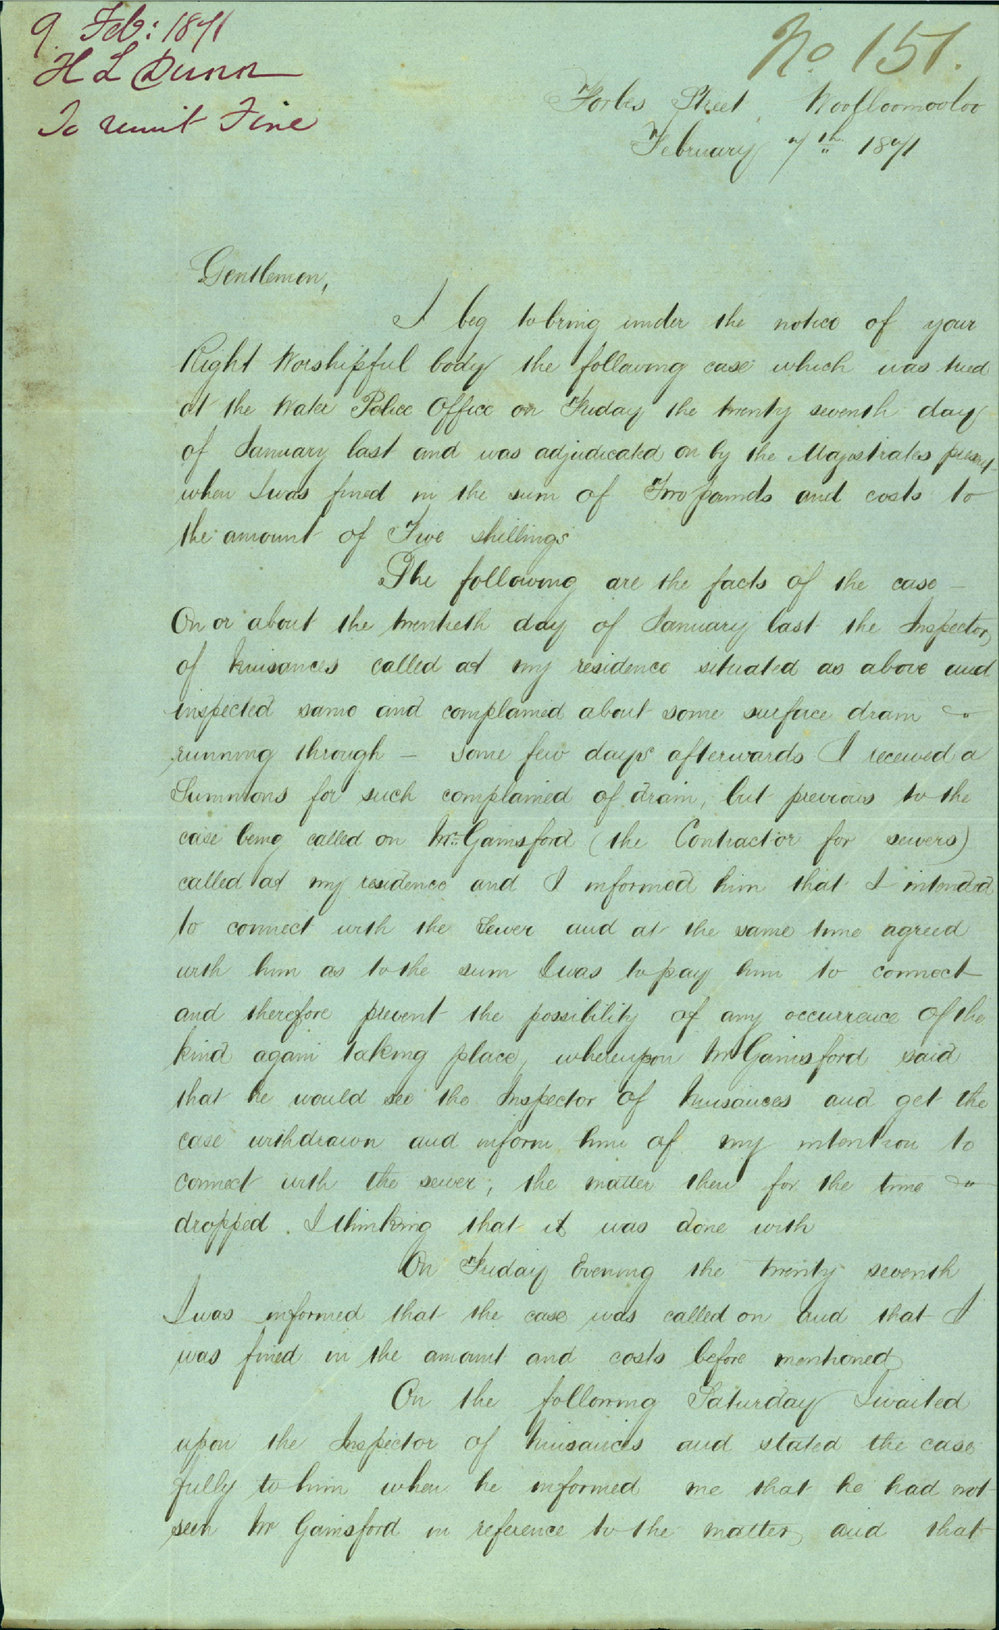 9 Feb: 1871
H L Dunn
To remit Fine
No 151.
Forbes Street Woolloomooloo
February 7th 1871
Gentlemen,
I beg to bring under the notice of your
Right Worshipful body the following case which was tried
at the Water Police Office on Friday the twenty seventh day
of January last and was adjudicated on by the Magistrates present
when I was fined in the sum of Two pounds and costs to
the amount of Five shillings
The following are the facts of the case —
On or about the twentieth day of January last the Inspector
of Nuisances called at my residence situated as above and
inspected same and complained about some surface drain
running through — some few days afterwards I received a
Summons for such complained of drain, but previous to the
case being called on Mr. Gainsford (the Contractor for sewers)
called at my residence and I informed him that I intended
to connect with the Sewer and at the same time agreed
with him as to the sum I was to pay him to connect
and therefore prevent the possibility of any occurrence of the
kind again taking place, whereupon Mr Gainsford said
that he would see the Inspector of Nuisances and get the
case withdrawn and inform him of my intention to
connect with the sewer; the matter then for the time
dropped. I thinking that it was done with
On Friday Evening the twenty seventh
I was informed that the case was called on and that I
was fined in the amount and costs before mentioned
On the following Saturday I waited
upon the Inspector of Nuisances and stated the case
fully to him when he informed me that he had not
seen Mr Gainsford in reference to the matter, and that